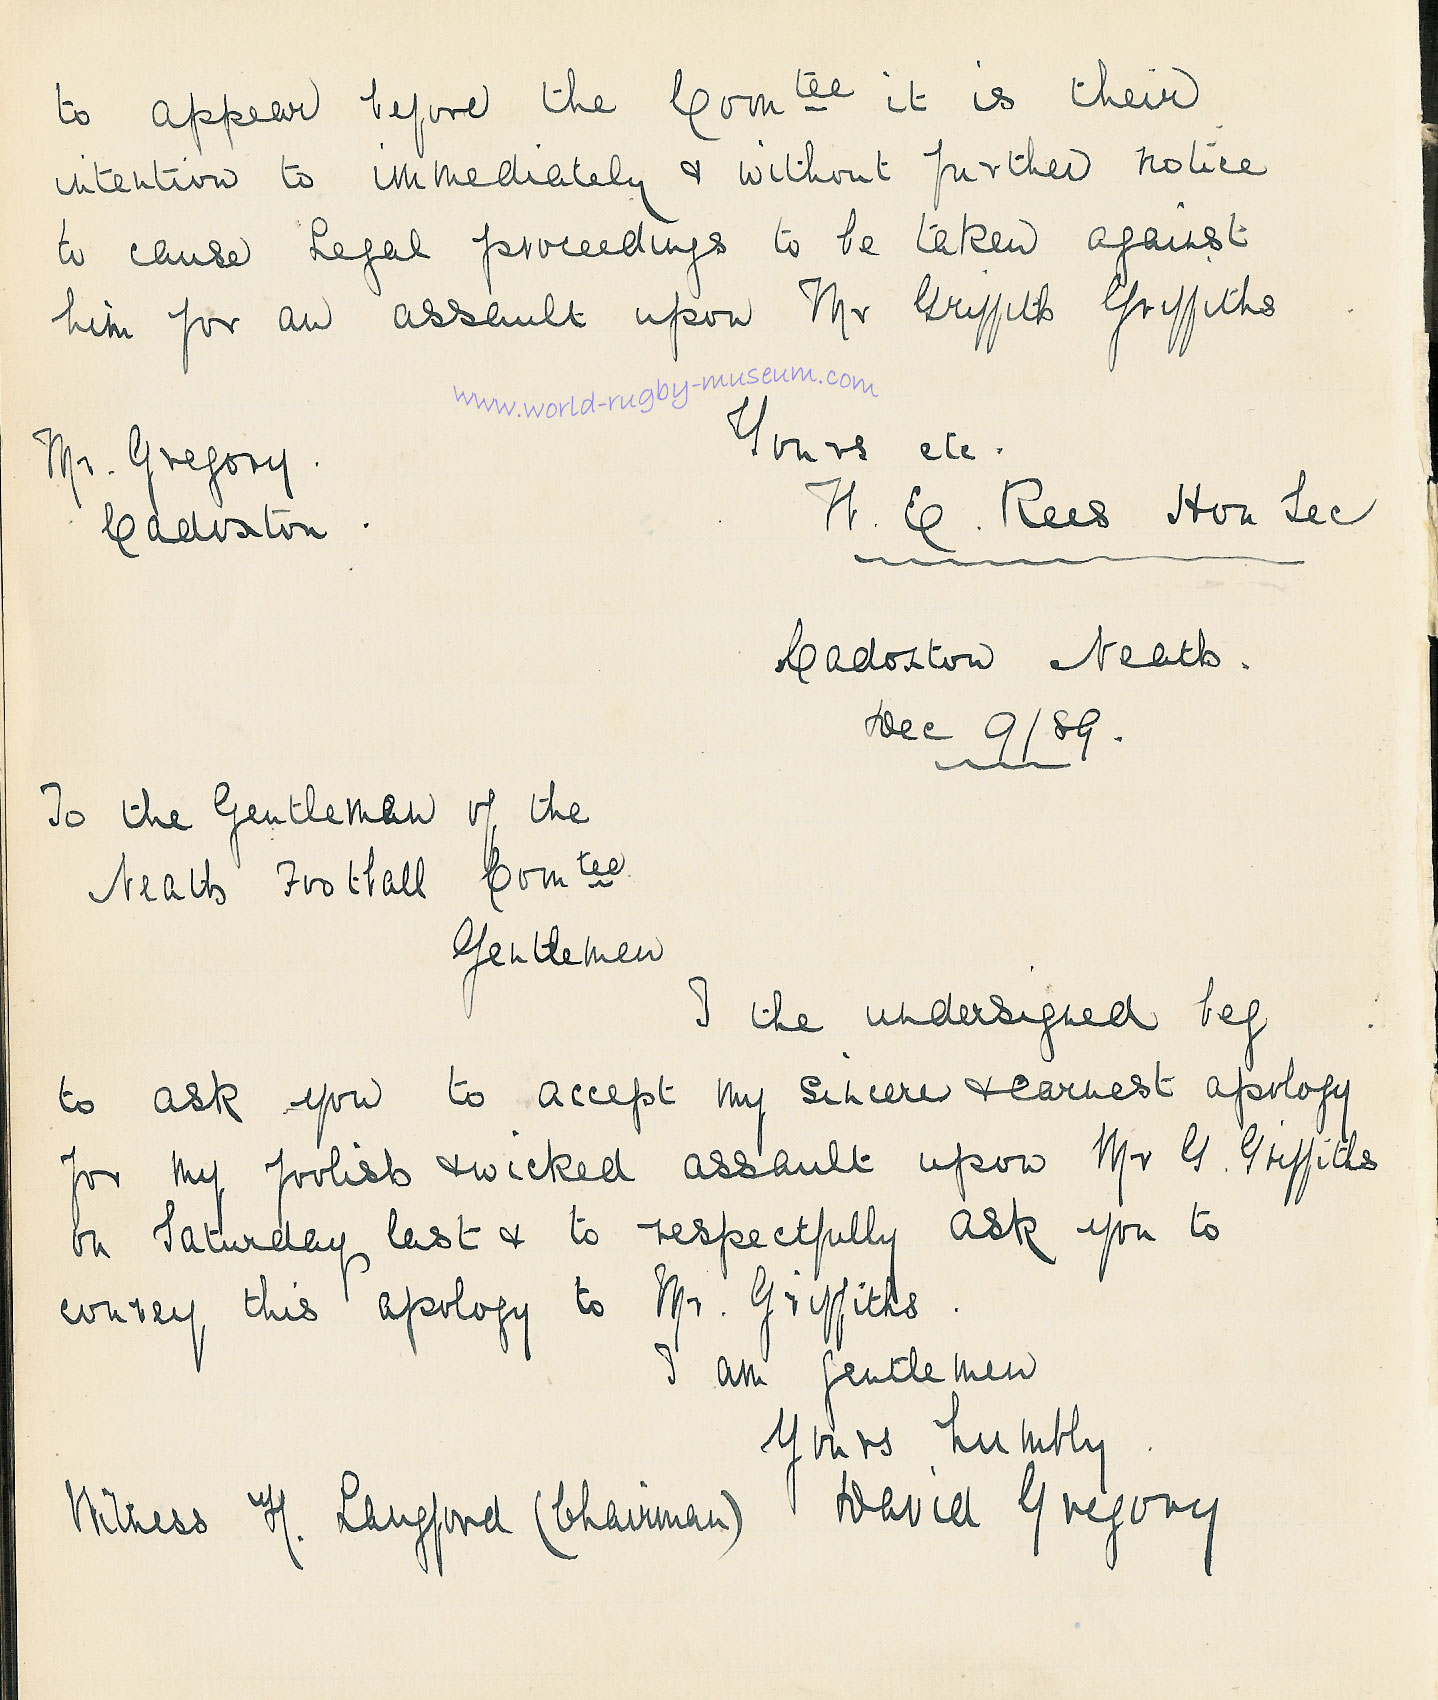 to appear before the Comtee it is their
intention to immediately & without further notice
to cause Legal proceedings to be taken against
him for an assault upon Mr Griffith Griffiths
www.world-rugby-museum.com
Yours etc.
Mr. Gregory.
W. E. Rees Hon Sec
Cadoxton.
Cadoxton Neath.
Dec 9/89.
To the Gentleman of the
Neath Football Comtee
Gentlemen
I the undersigned beg
to ask you to accept my sincere & earnest apology
for my foolish & wicked assault upon Mr G. Griffiths
on Saturday last & to respectfully ask you to
convey this apology to Mr. Griffiths.
I am gentlemen
Yours humbly
Witness H. Langford (Chairman) David Gregory